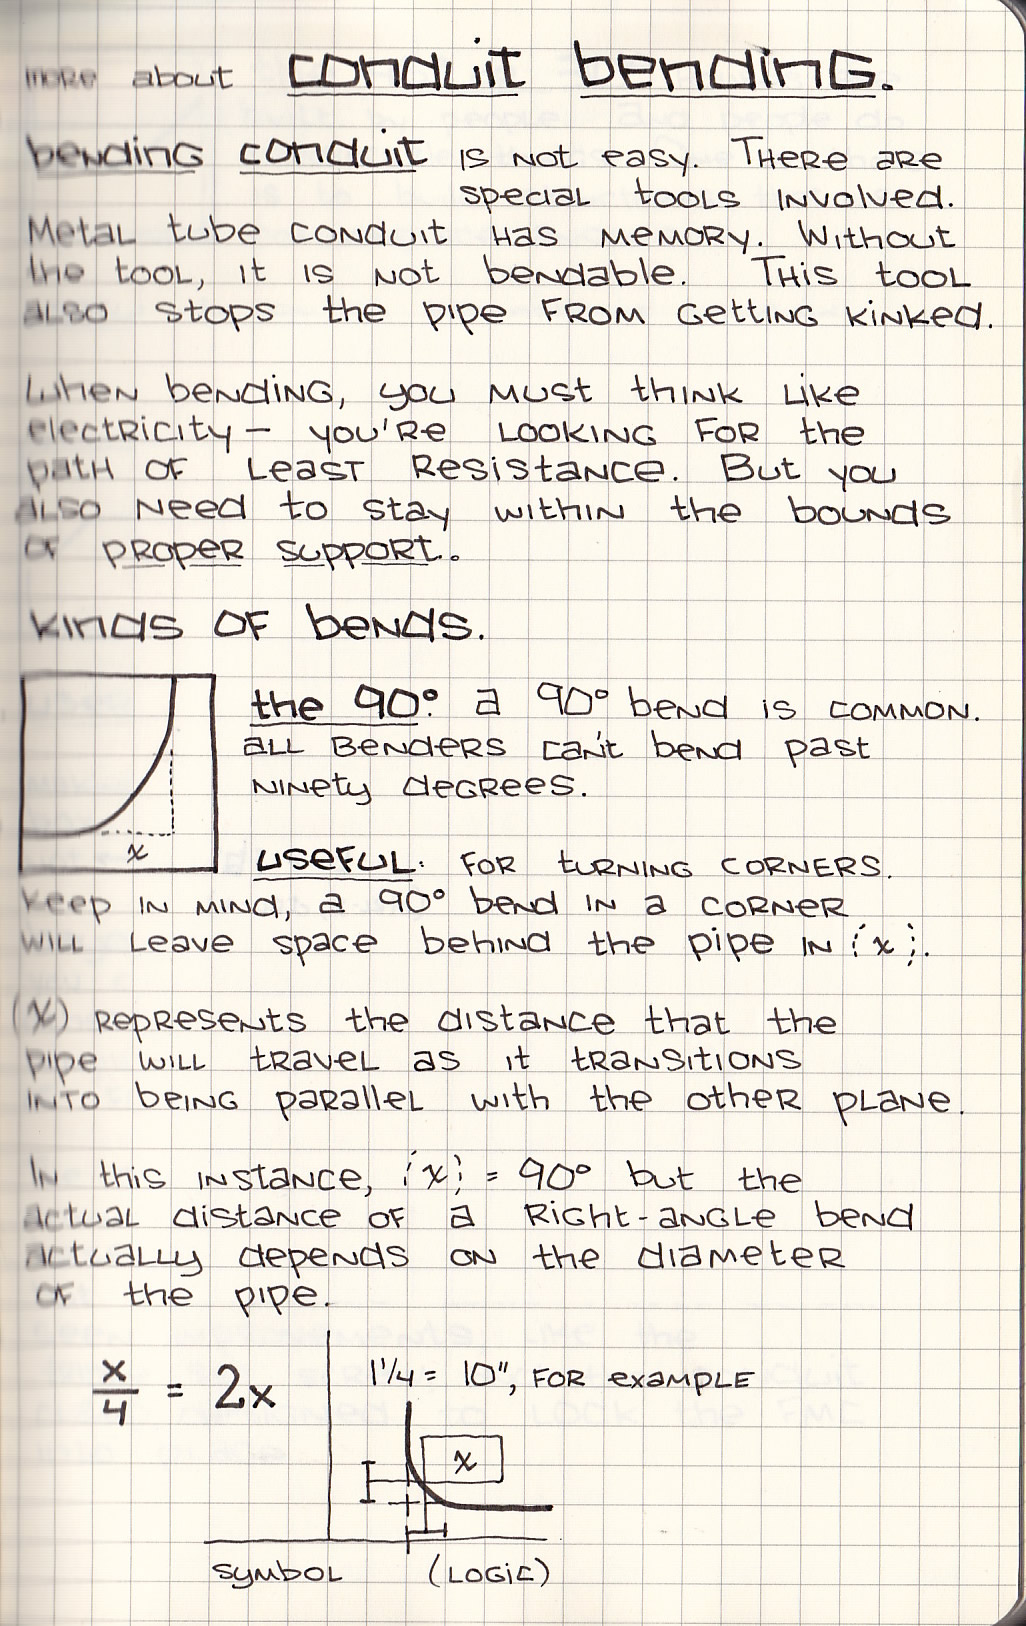 more about conduit bending.
bending conduit is not easy. There are
special tools involved.
Metal tube conduit has memory. Without
the tool, it is not bendable. This tool
also stops the pipe from getting kinked.
When bending, you must think like
electricity – you're looking for the
path of least resistance. But you
also need to stay within the bounds
of proper support.
kinds of bends.
the 90°. a 90° bend is common.
all benders can't bend past
ninety degrees.
x
useful: for turning corners.
keep in mind, a 90° bend in a corner
will leave space behind the pipe in {x}.
(x) represents the distance that the
pipe will travel as it transitions
into being parallel with the other plane.
In this instance, {x} = 90° but the
actual distance of a right-angle bend
actually depends on the diameter
of the pipe.
x/4 = 2x
1 1/4 = 10", for example
x
symbol (logic)